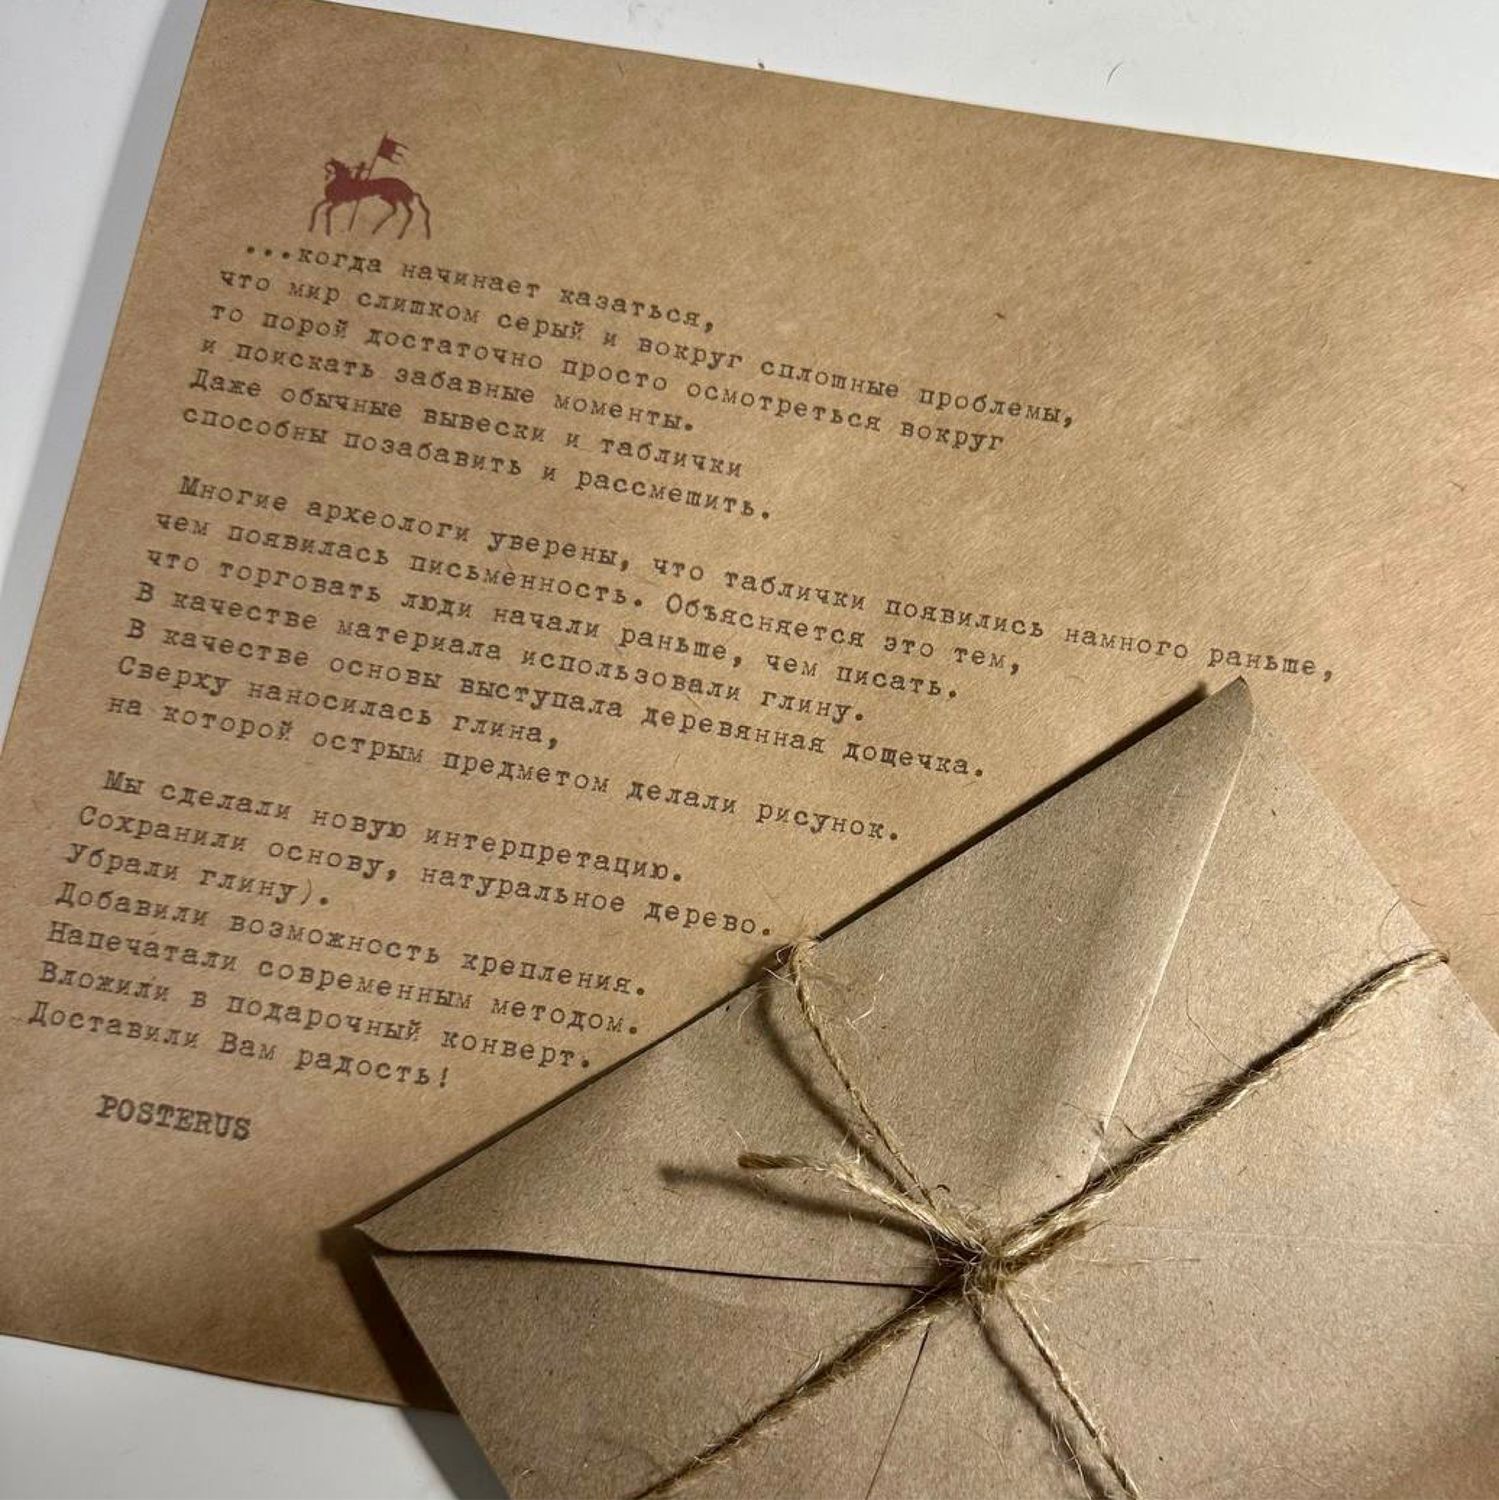 ...когда начинает казаться,
что мир слишком серый и вокруг сплошные проблемы,
то порой достаточно просто осмотреться вокруг
и поискать забавные моменты.
Даже обычные вывески и таблички
способны позабавить и рассмешить.
Многие археологи уверены, что таблички появились намного раньше,
чем появилась письменность. Объясняется это тем,
что торговать люди начали раньше, чем писать.
В качестве материала использовали глину.
В качестве основы выступала деревянная дощечка.
Сверху наносилась глина,
на которой острым предметом делали рисунок.
Мы сделали новую интерпретацию.
Сохранили основу, натуральное дерево.
Убрали глину).
Добавили возможность крепления.
Напечатали современным методом.
Вложили в подарочный конверт.
Доставили Вам радость!
POSTERUS